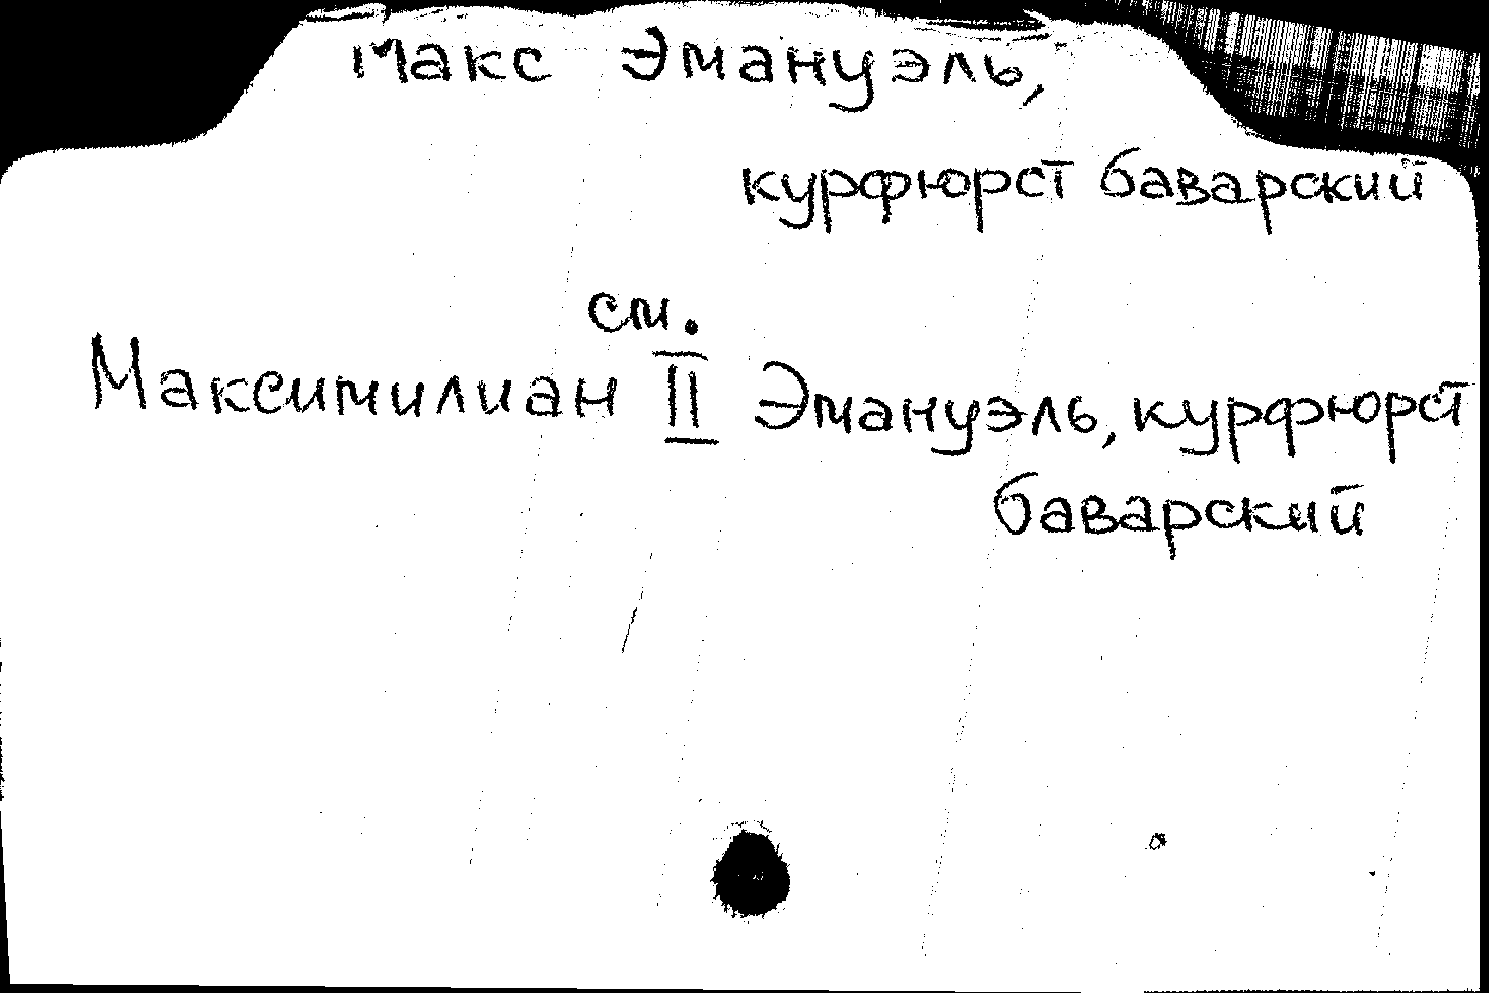 Макс Эмануэль,
курфюрст баварский
см.
Максимилиан II Эмануэль, курфюрст
баварский